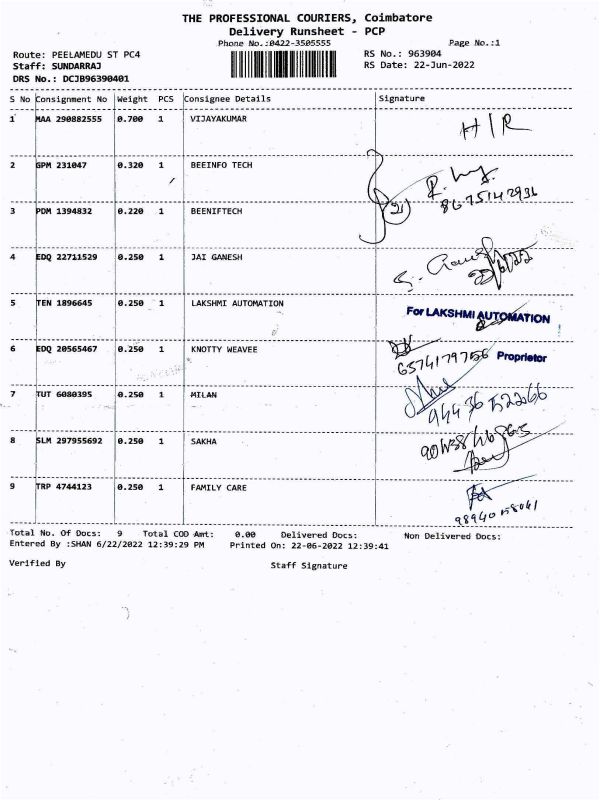 THE PROFESSIONAL COURIERS, Coimbatore
Delivery Runsheet - PCP
Phone No.:0422-3505555 Page No.:1
Route: PEELAMEDU ST PC4 RS No.: 963904
Staff: SUNDARRAJ RS Date: 22-Jun-2022
DRS No.: DCJB96390401
S No Consignment No Weight PCS Consignee Details Signature
1 MAA 290882555 0.700 1 VIJAYAKUMAR H/R
2 GPM 231047 0.320 1 BEEINFO TECH
8675142936
3 PDM 1394832 0.220 1 BEENIFTECH
4 EDQ 22711529 0.250 1 JAI GANESH
5 TEN 1896645 0.250 1 LAKSHMI AUTOMATION For LAKSHMI AUTOMATION
6 EDQ 20565467 0.250 1 KNOTTY WEAVEE Proprietor
7 TUT 6080395 0.250 1 MILAN
94436 52266
8 SLM 297955692 0.250 1 SAKHA
9 TRP 4744123 0.250 1 FAMILY CARE
9894058041
Total No. Of Docs: 9 Total COD Amt: 0.00 Delivered Docs: Non Delivered Docs:
Entered By :SHAN 6/22/2022 12:39:29 PM Printed On: 22-06-2022 12:39:41
Verified By Staff Signature